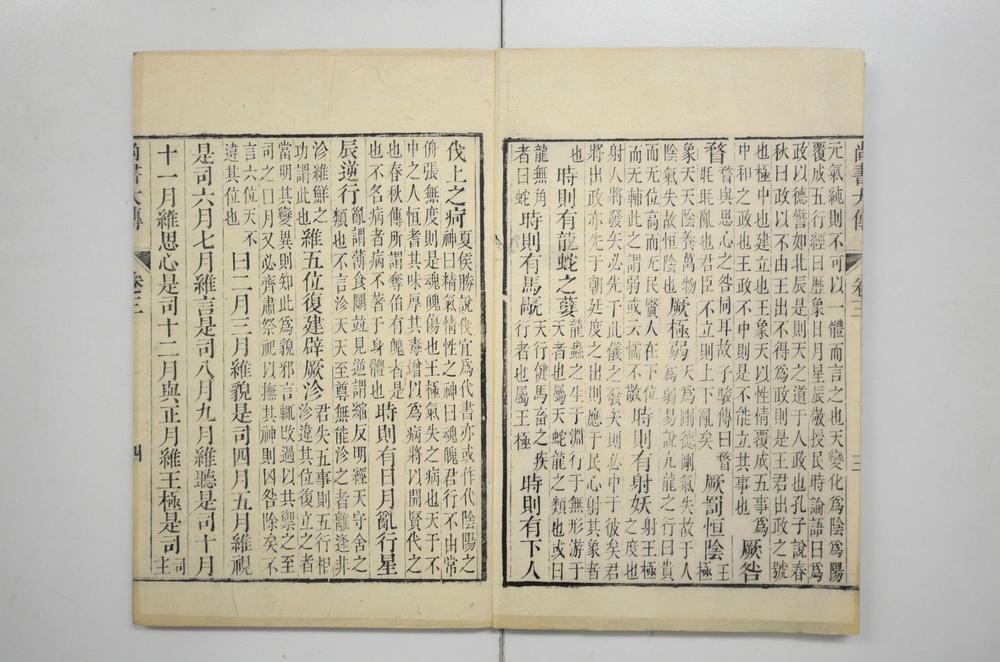 尚書大傳 卷三 三
元氣純則不可以一體而言之也天變化為陰為陽
覆成五行經曰曆象日月星辰敬授民時論語曰為
政以德譬如北辰是則天之道于人政也孔子說春
秋曰政以不由王出不得為政則是王君出政之號
也極中也建立也王象天以性情覆成五事為
中和之政也王政不中則是不能立其事也
厥咎
瞀
瞀與思心之咎同耳故子駿傳曰瞀
眊眊亂也君臣不立則上下亂矣
厥罰恒陰
王
極
象天天陰養萬物
陰氣失故恒陰也
厥極弱
天為剛德剛氣失故于人
為弱易說亢龍之行曰貴
而無位高而無民賢人在下位
而無輔此之謂弱或云懦不敬
時則有射妖
射王極
之度也
射人將發矢必先于此儀之發矢則必中于彼矣君
將出政亦先于朝廷度之出則應于民心射其象者
也
時則有龍蛇之孽
龍蟲之生于淵行于無形游于
天者也屬天蛇龍之類也或曰
龍無角
者曰蛇
時則有馬旤
天行健馬畜之疾
行者也屬王極
時則有下人
伐上之痾
夏侯勝說伐宜為代書亦或作代陰陽之
神曰精氣情性之神曰魂魄君行不由常
侜張無度則是魂魄傷也王極氣失之病也天于不
中之人恒耆其味厚其毒增以為病將以開賢代之
也春秋傳所謂奪伯有魄者是
也不名病者病不著于身體也
時則有日月亂行星
辰逆行
亂謂薄食鬭並見逆謂縮反明經天守舍之
類也不言沴天天至尊無能沴之者離逢非
沴維鮮之
功謂此也
維五位復建辟厥沴
君失五事則五行相
沴違其位復立之者
當明其變異則知此為貌邪言輒改過以共禦之至
司之囗月又必齊肅祭祀以撫其神則凶咎除矣不
言六位天不
違其位也
曰二月三月維貌是司四月五月維視
是司六月七月維言是司八月九月維聽是司十月
十一月維思心是司十二月與正月維王極是司
司
主
尚書大傳 卷三 四